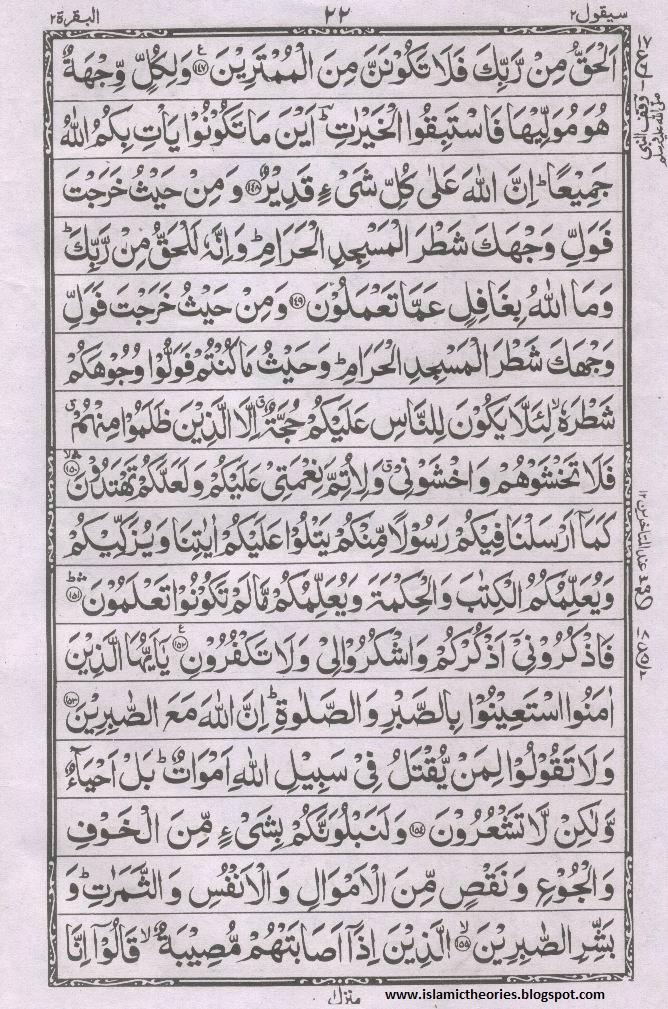 سيقول ٢ ٢٢ البقرة ٢
اَلْحَقُّ مِنْ رَّبِّكَ فَلَا تَكُوْنَنَّ مِنَ الْمُمْتَرِيْنَ ﴿١٤٧﴾ وَلِكُلٍّ وِّجْهَةٌ
هُوَ مُوَلِّيْهَا فَاسْتَبِقُوا الْخَيْرٰتِ ؕ اَيْنَ مَا تَكُوْنُوْا يَاْتِ بِكُمُ اللّٰهُ
جَمِيْعًا ؕ اِنَّ اللّٰهَ عَلٰى كُلِّ شَىْءٍ قَدِيْرٌ ﴿١٤٨﴾ وَمِنْ حَيْثُ خَرَجْتَ
فَوَلِّ وَجْهَكَ شَطْرَ الْمَسْجِدِ الْحَرَامِ ؕ وَاِنَّهٗ لَلْحَقُّ مِنْ رَّبِّكَ ؕ
وَمَا اللّٰهُ بِغَافِلٍ عَمَّا تَعْمَلُوْنَ ﴿١٤٩﴾ وَمِنْ حَيْثُ خَرَجْتَ فَوَلِّ
وَجْهَكَ شَطْرَ الْمَسْجِدِ الْحَرَامِ ؕ وَحَيْثُ مَا كُنْتُمْ فَوَلُّوْا وُجُوْهَكُمْ
شَطْرَهٗ ۙ لِئَلَّا يَكُوْنَ لِلنَّاسِ عَلَيْكُمْ حُجَّةٌ ۙ اِلَّا الَّذِيْنَ ظَلَمُوْا مِنْهُمْ ۗ
فَلَا تَخْشَوْهُمْ وَاخْشَوْنِىْ ۗ وَلِاُتِمَّ نِعْمَتِىْ عَلَيْكُمْ وَلَعَلَّكُمْ تَهْتَدُوْنَ ﴿١٥٠﴾
كَمَاۤ اَرْسَلْنَا فِيْكُمْ رَسُوْلًا مِّنْكُمْ يَتْلُوْا عَلَيْكُمْ اٰيٰتِنَا وَيُزَكِّيْكُمْ
وَيُعَلِّمُكُمُ الْكِتٰبَ وَالْحِكْمَةَ وَيُعَلِّمُكُمْ مَّا لَمْ تَكُوْنُوْا تَعْلَمُوْنَ ﴿١٥١﴾
فَاذْكُرُوْنِىْۤ اَذْكُرْكُمْ وَاشْكُرُوْا لِىْ وَلَا تَكْفُرُوْنِ ﴿١٥٢﴾ يٰۤاَيُّهَا الَّذِيْنَ
اٰمَنُوا اسْتَعِيْنُوْا بِالصَّبْرِ وَالصَّلٰوةِ ؕ اِنَّ اللّٰهَ مَعَ الصّٰبِرِيْنَ ﴿١٥٣﴾
وَلَا تَقُوْلُوْا لِمَنْ يُّقْتَلُ فِىْ سَبِيْلِ اللّٰهِ اَمْوَاتٌ ؕ بَلْ اَحْيَآءٌ
وَّلٰكِنْ لَّا تَشْعُرُوْنَ ﴿١٥٤﴾ وَلَنَبْلُوَنَّكُمْ بِشَىْءٍ مِّنَ الْخَوْفِ
وَالْجُوْعِ وَنَقْصٍ مِّنَ الْاَمْوَالِ وَالْاَنْفُسِ وَالثَّمَرٰتِ ؕ وَ
بَشِّرِ الصّٰبِرِيْنَ ﴿١٥٥﴾ الَّذِيْنَ اِذَاۤ اَصَابَتْهُمْ مُّصِيْبَةٌ ۙ قَالُوْۤا اِنَّا
منزل ١
www.islamictheories.blogspot.com